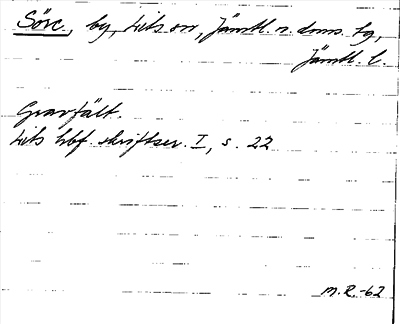 Söre, by, Lits sn, Jämtl. n. doms. tg,
Jämtl. l.
Gravfält.
Lits hbf. skriftser. I, s. 22
M.R.-62